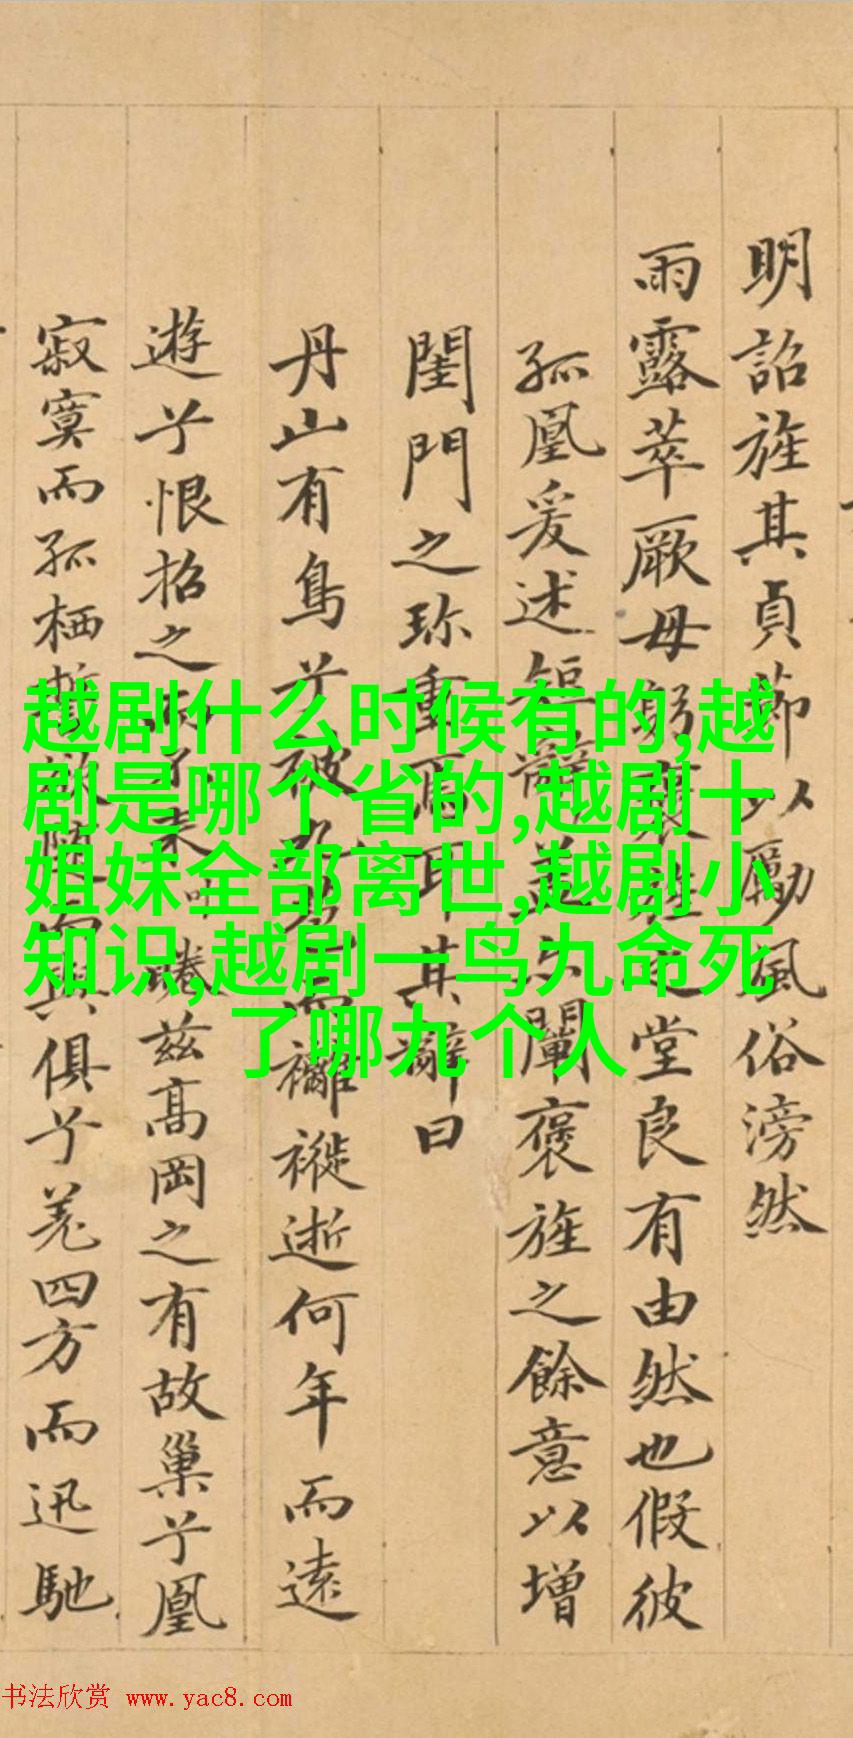 明詔旌其貞節以勵風俗滂然
雨露萃厥母躬褒旌之堂良有由然也假彼
孤凰爰述短辭闡褒旌之餘意以增
閨門之珎重焉耳其辭曰
丹山有鳥兮被而襹褷逝何年而遠
遊兮恨招之而未茲高岡之有故巢兮凰
寂寞而孤栖誓欲隨而與俱兮羌四方而迅馳
越剧什么时候有的,越
剧是哪个省的,越剧十
姐妹全部离世,越剧小
知识,越剧一鸟九命死
了哪九个人
书法欣赏 www.yac8.com